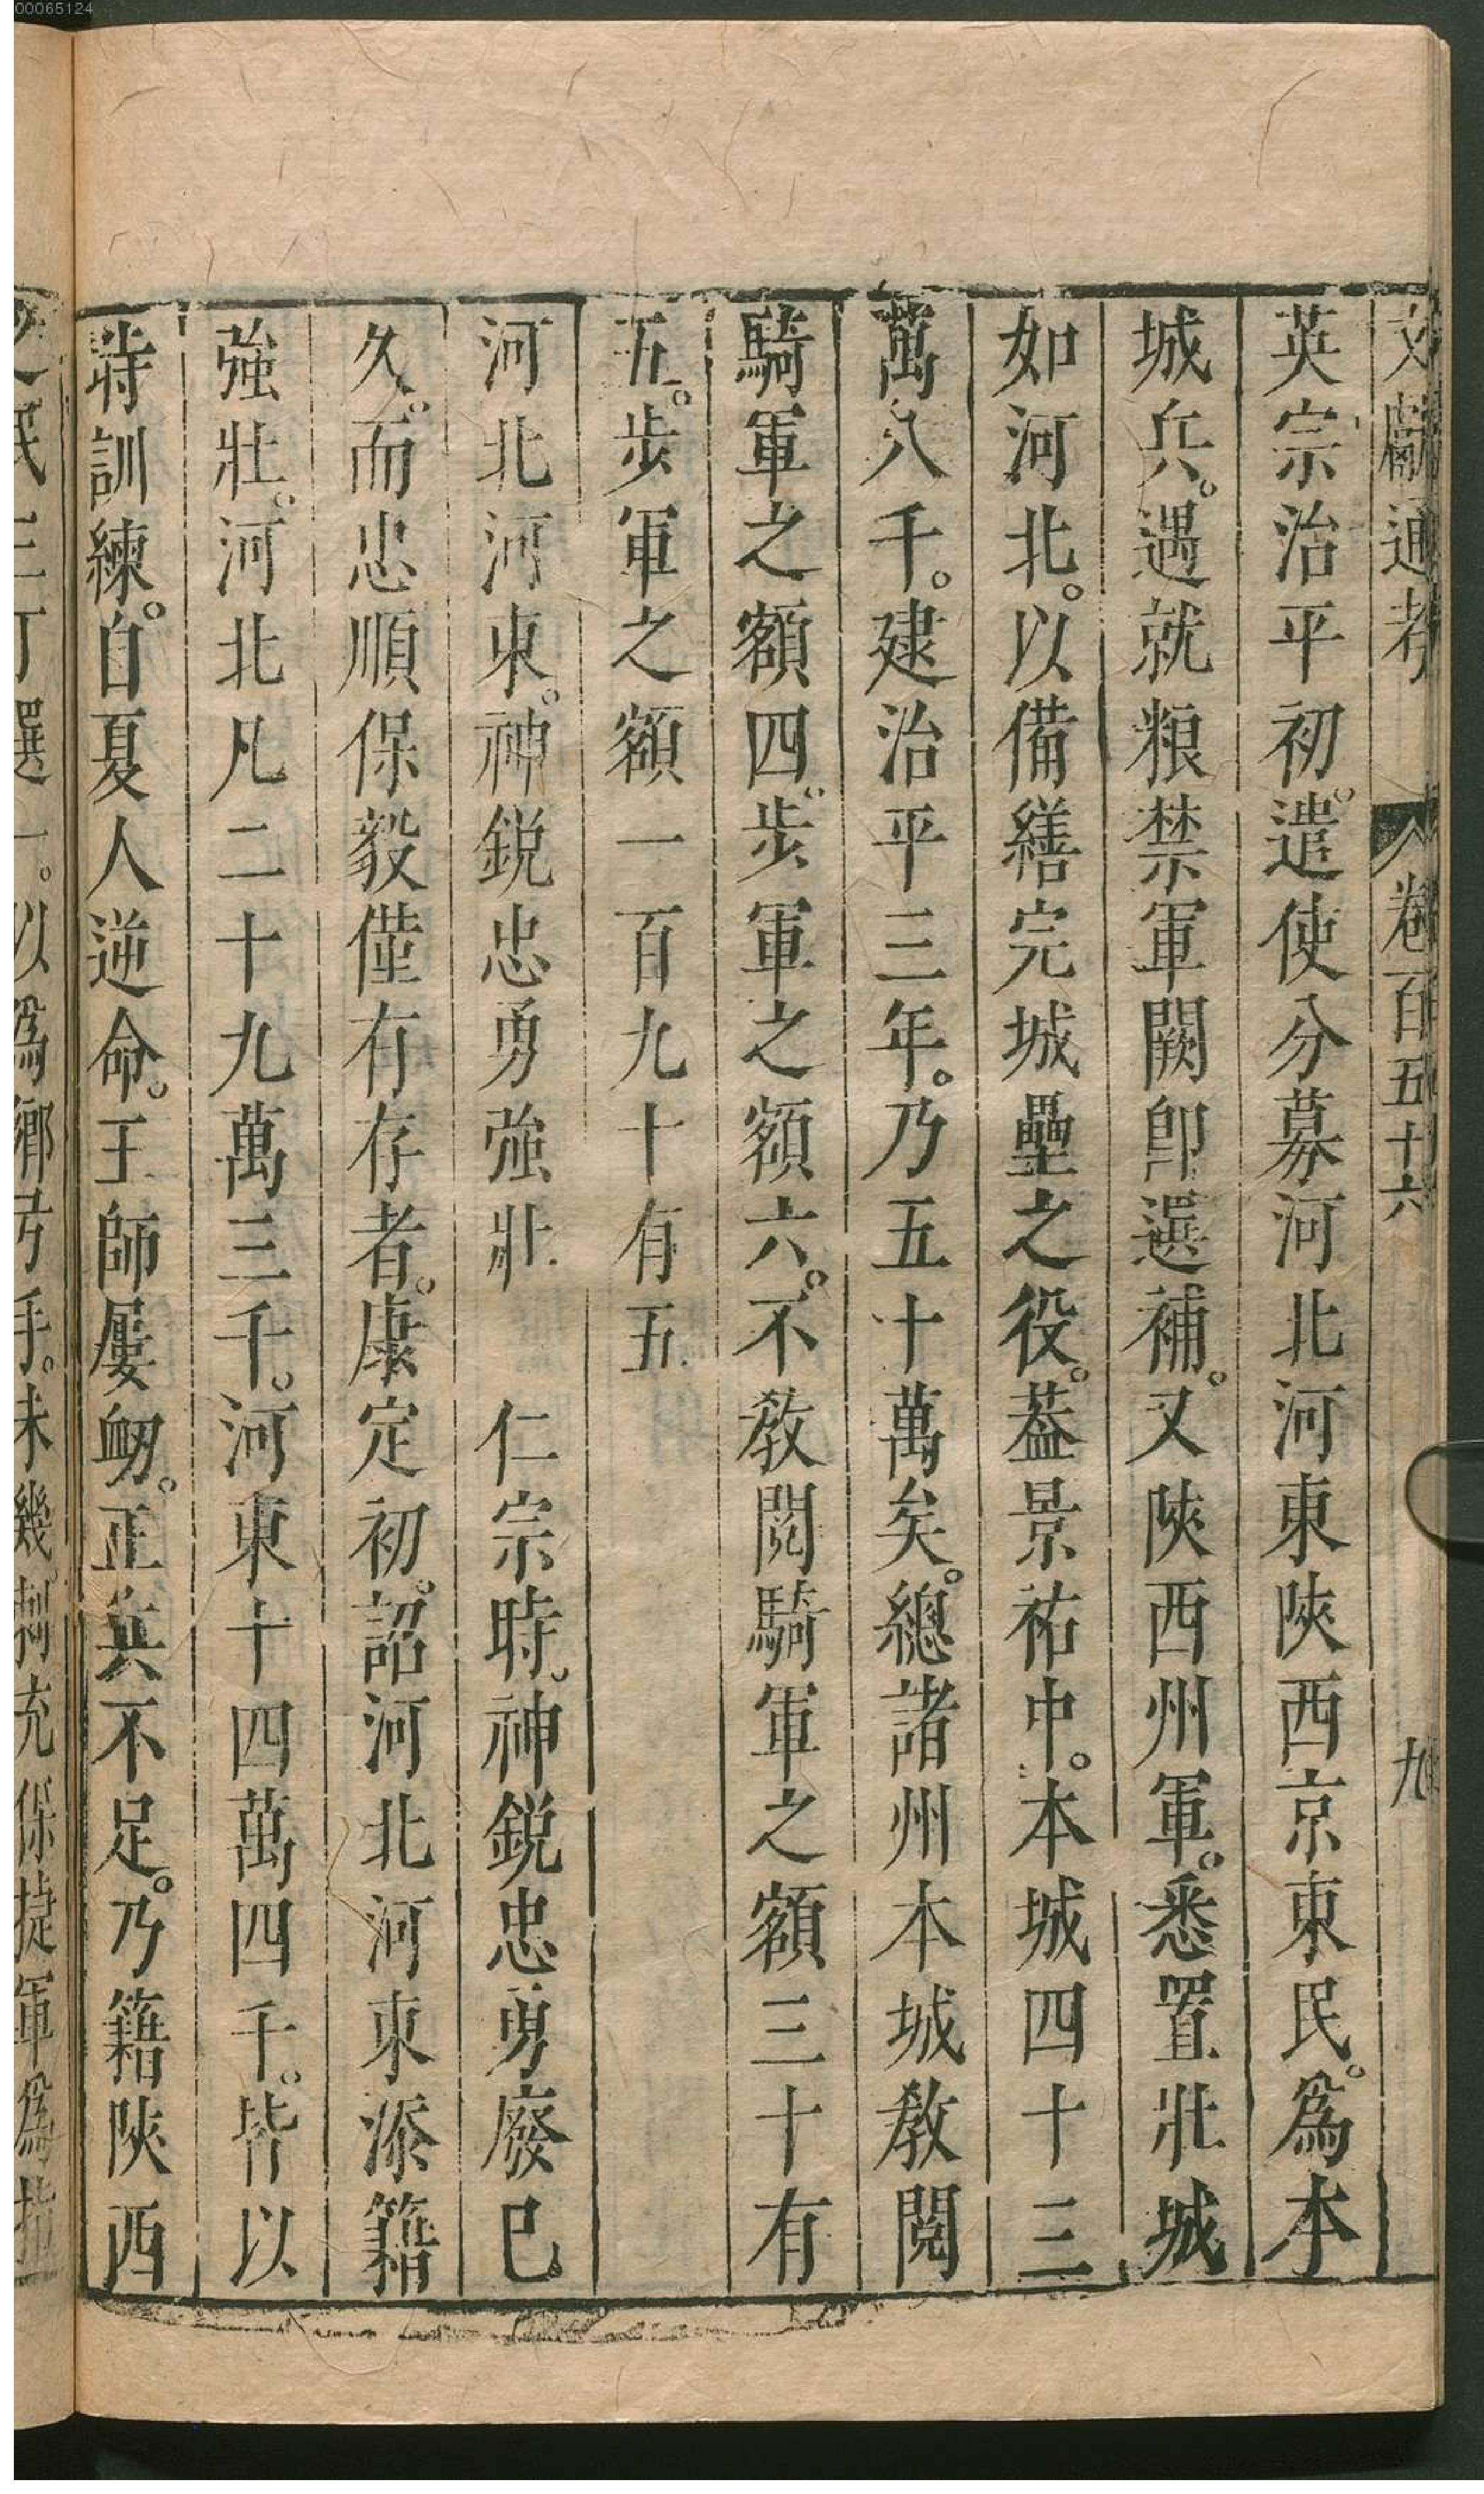 00065124
文獻通考 卷百五十六 九
英宗治平初。遣使分募河北河東陝西京東民。爲本
城兵。遇就粮禁軍闕卽選補。又陝西州軍。悉置壯城
如河北。以備繕完城壘之役。葢景祐中。本城四十三
萬八千。建治平三年。乃五十萬矣。總諸州本城教閱
騎軍之額四。步軍之額六。不教閱騎軍之額三十有
五。步軍之額一百九十有五
河北河東。神銳忠勇強壯 仁宗時。神銳忠勇廢已
久。而忠順保毅僅有存者。康定初。詔河北河東添籍
強壯。河北凡二十九萬三千。河東十四萬四千。皆以
時訓練。自夏人逆命。王師屢衂。正兵不足。乃籍陝西
之民三丁選一。以爲鄉弓手。未幾刺充保捷軍爲指